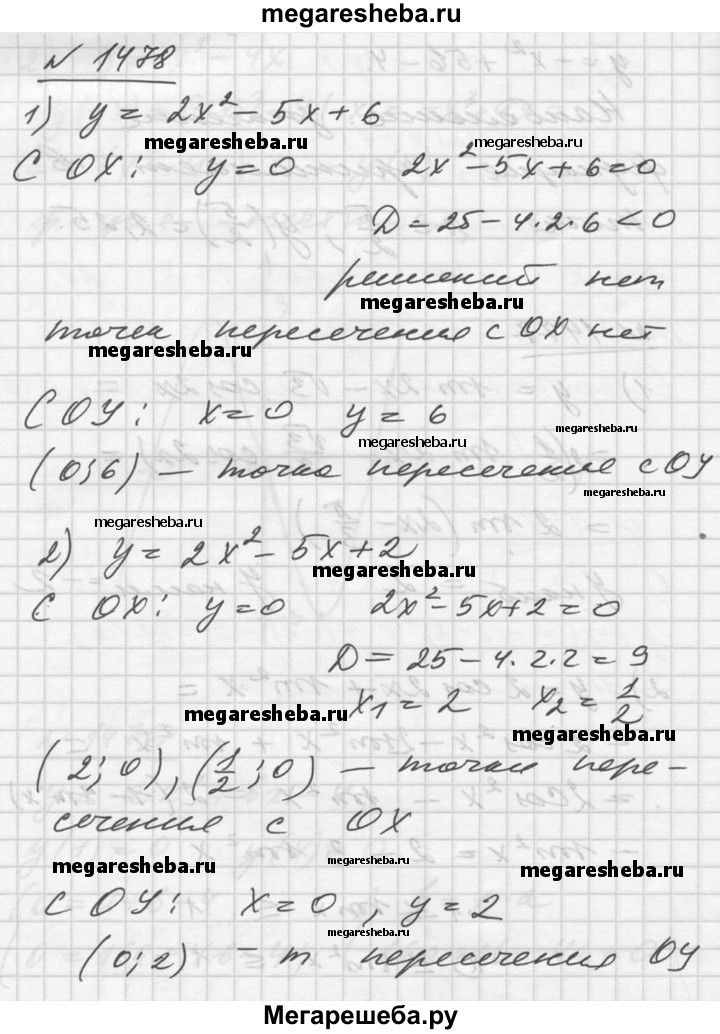 megaresheba.ru
№ 1478
1) y = 2x² - 5x + 6
megaresheba.ru megaresheba.ru
С OX: y = 0 2x² - 5x + 6 = 0
D = 25 - 4·2·6 < 0
решений нет
megaresheba.ru
точек пересечения с OX нет
megaresheba.ru
С OY: x = 0 y = 6
megaresheba.ru
(0; 6) — точка пересечение с OY
megaresheba.ru
megaresheba.ru
2) y = 2x² - 5x + 2
megaresheba.ru
С OX: y = 0 2x² - 5x + 2 = 0
D = 25 - 4·2·2 = 9
x₁ = 2 x₂ = 1/2
megaresheba.ru
megaresheba.ru
(2; 0), (1/2; 0) — точки пере-
сечения с OX
megaresheba.ru megaresheba.ru megaresheba.ru
С OY: x = 0, y = 2
megaresheba.ru
(0; 2) — т пересечения OY
megaresheba.ru
Мегарешеба.ру